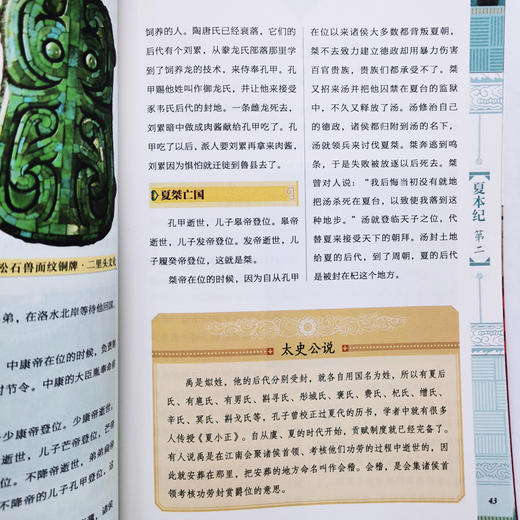 松石兽面纹铜牌·二里头文
弟，在洛水北岸等待他回国，
中康帝在位的时候，负责
时节令。中康的大臣胤奉命
少康帝登位。少康帝逝
世，儿子芒帝登位。芒
不降帝登位。
不降帝逝世，弟弟扃帝
不降帝的儿子孔甲登位，这
诸侯
饲养的人。陶唐氏已经衰落，它们的
后代有个刘累，从豢龙氏部落那里学
到了饲养龙的技术，来侍奉孔甲。孔
甲赐他姓叫作御龙氏，并让他来接受
豕韦氏后代的封地。一条雌龙死去，
刘累暗中做成肉酱献给孔甲吃了。孔
甲吃了以后，派人要刘累再拿来肉酱，
刘累因为惧怕就迁徙到鲁县去了。
夏桀亡国
孔甲逝世，儿子皋帝登位。皋帝
逝世，儿子发帝登位。发帝逝世，儿
子履癸帝登位，这就是桀。
桀帝在位的时候，因为自从孔甲
在位以来诸侯大多数都背叛夏朝，
桀不去致力建立德政却用暴力伤害
百官贵族，贵族们都承受不了。桀
又招来汤并把他囚禁在夏台的监狱
中，不久又释放了汤。汤修治自己
的德政，诸侯都归附到汤的名下，
汤就领兵来讨伐夏桀。桀奔逃到鸣
条，于是失败被放逐以后死去。桀
曾对人说：“我后悔当初没有就地
把汤杀死在夏台，以致使我落到这
种地步。”汤就登临天子之位，代
替夏来接受天下的朝拜。汤封土地
给夏的后代，到了周朝，夏的后代
是被封在杞这个地方。
太史公说
禹是姒姓，他的后代分别受封，就各自用国名为姓，所以有夏后
氏、有扈氏、有男氏、斟寻氏、彤城氏、褒氏、费氏、杞氏、缯氏、
辛氏、冥氏、斟戈氏等，孔子曾校正过夏代的历书，学者中就有很多
人传授《夏小正》。自从虞、夏的时代开始，贡献制度就已经完备了。
有人说禹是在江南会聚诸侯首领、考核他们功劳的过程中逝世的，因
此就安葬在那里，把安葬的地方命名叫作会稽。会稽，是会集诸侯首
领考核功劳封赏爵位的意思。
夏本纪
第二
43